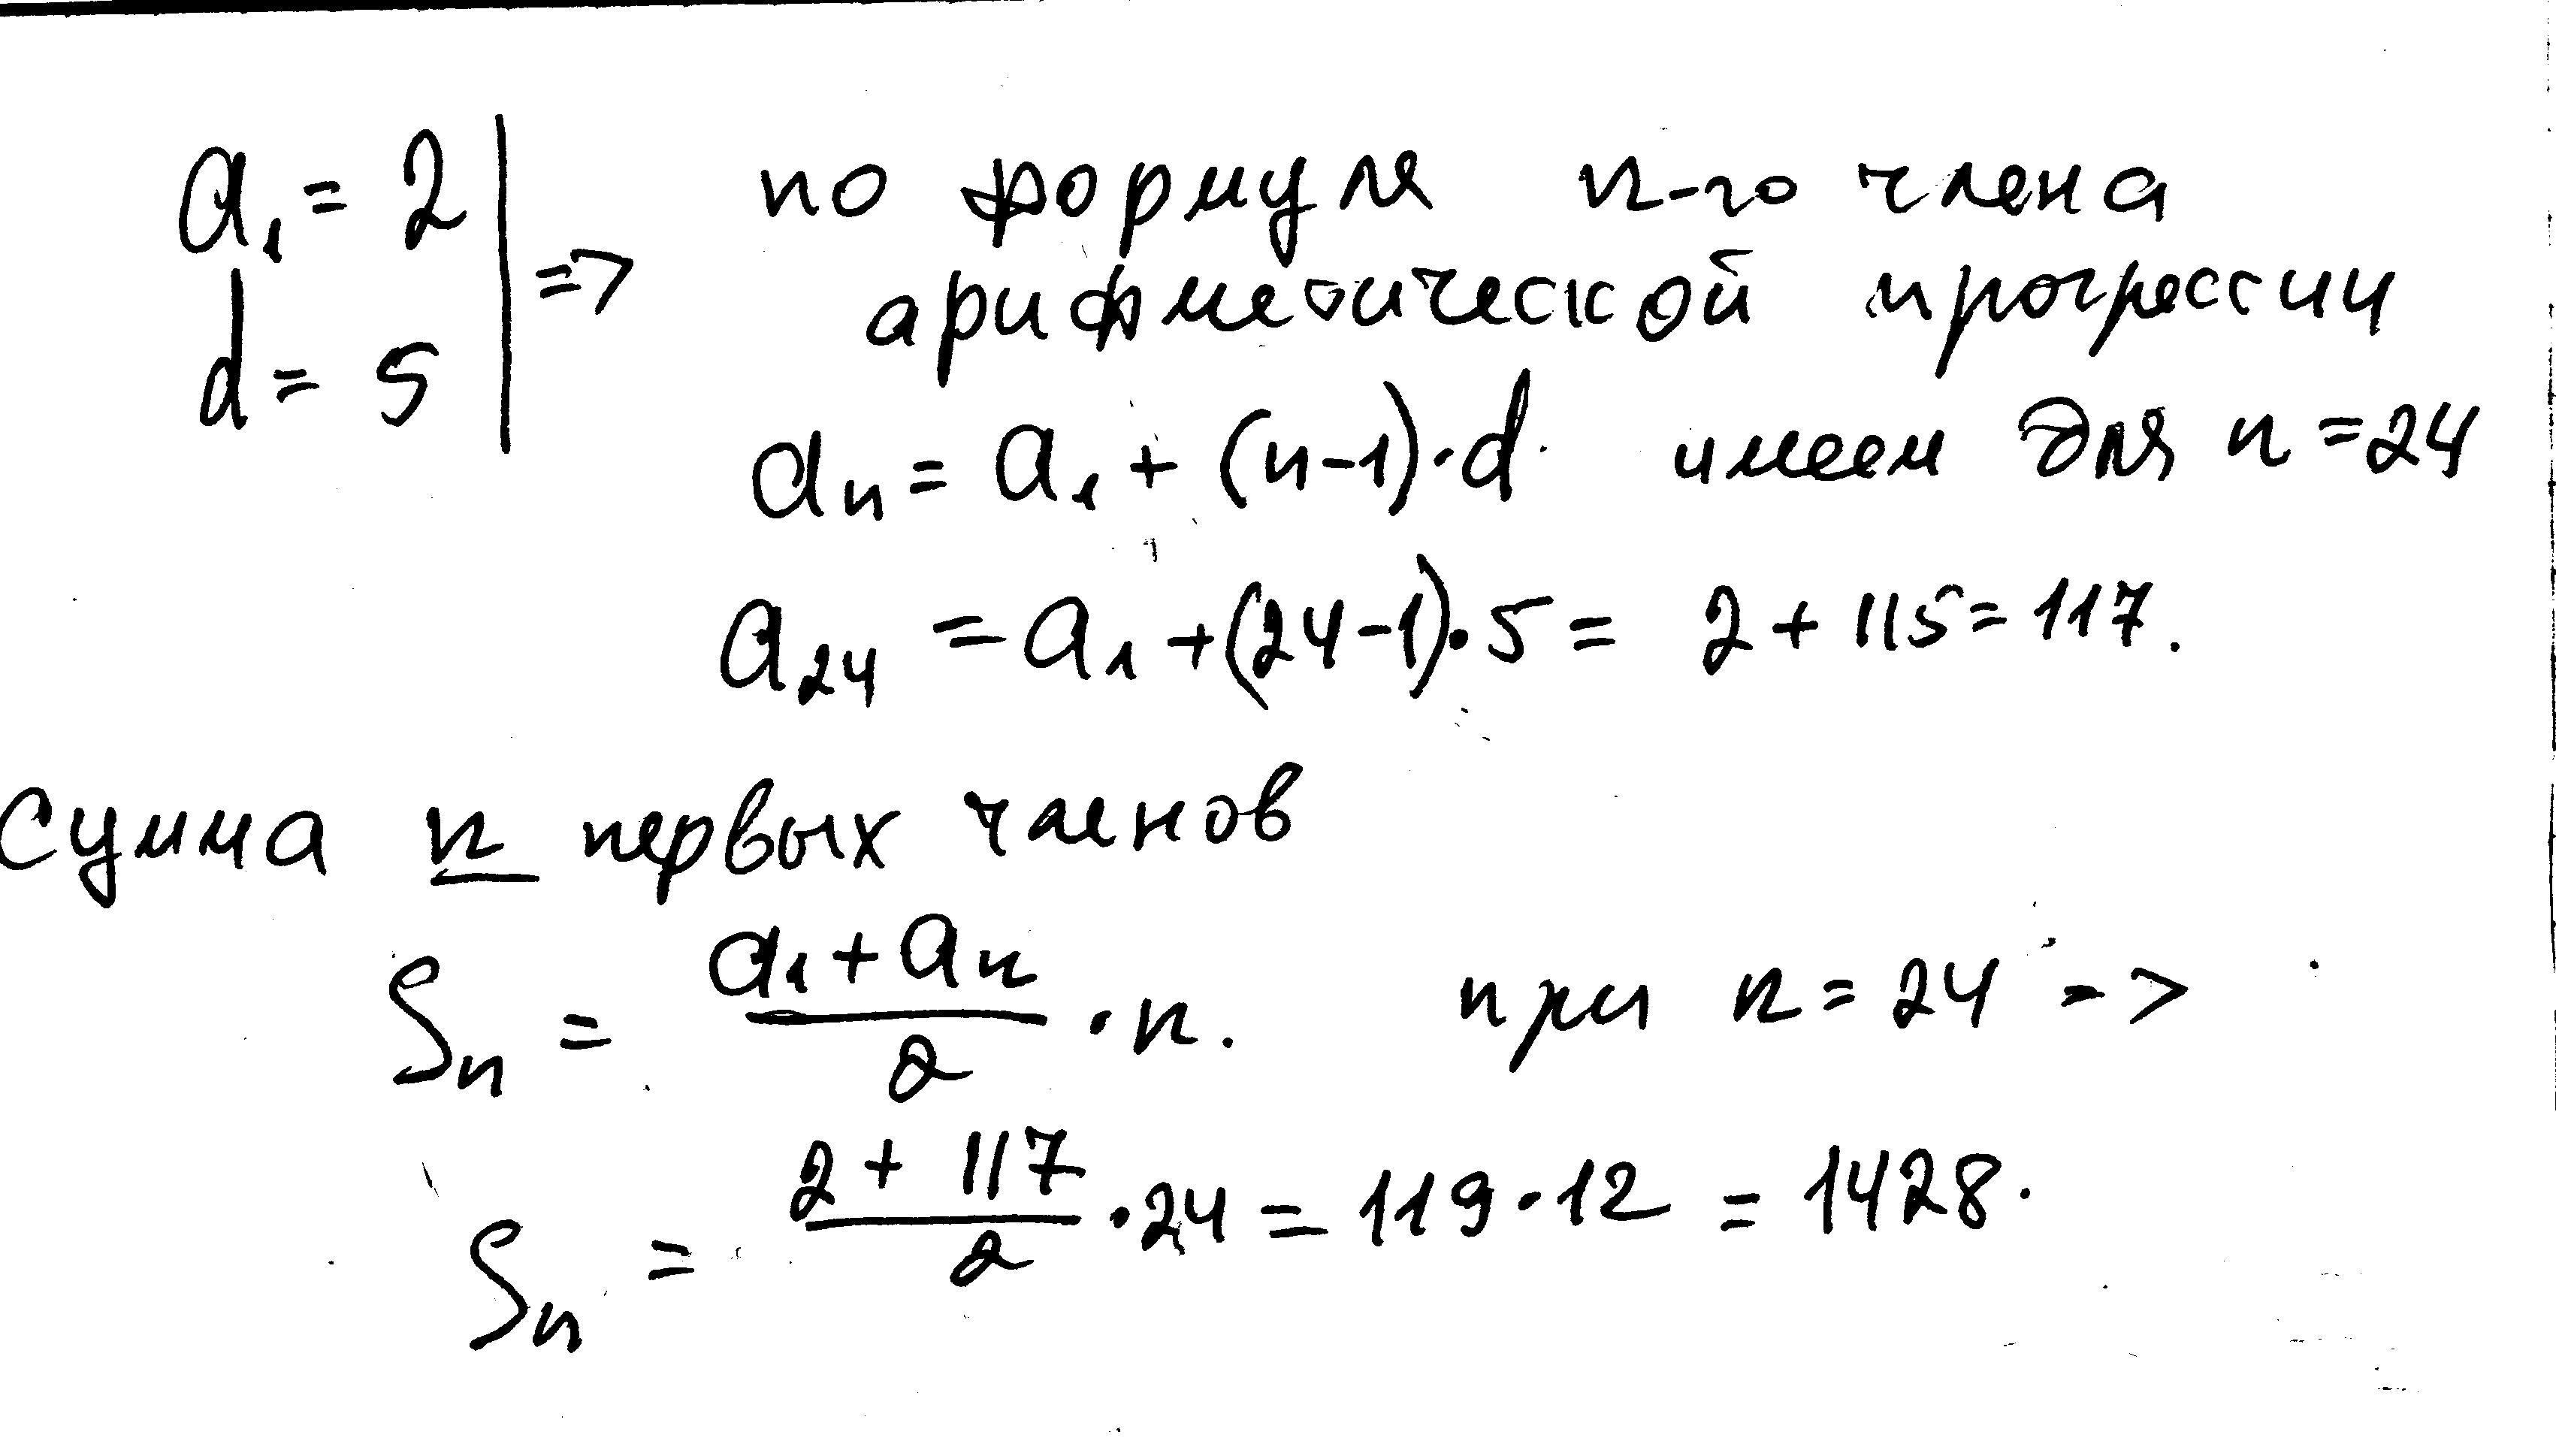 a₁ = 2
d = 5
=> по формуля n-го члена
арифметической прогрессии
aₙ = a₁ + (n-1)·d имеем для n = 24
a₂₄ = a₁ + (24-1)·5 = 2 + 115 = 117.
Сумма n первых членов
Sₙ = (a₁ + aₙ)/2 · n. при n = 24 =>
Sₙ = (2 + 117)/2 · 24 = 119 · 12 = 1428.